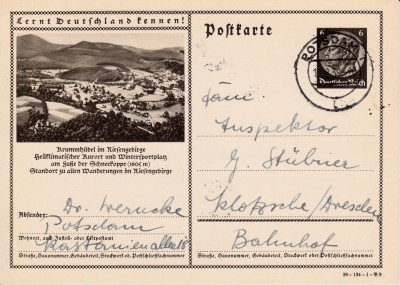 Lernt Deutschland kennen!
Krummhübel im Riesengebirge
Heilklimatischer Kurort und Wintersportplatz
am Fuße der Schneekoppe (1605 m)
Standort zu allen Wanderungen im Riesengebirge
Absender:
Dr. Wernicke
Potsdam
Wohnort, auch Zustell- oder Leitpostamt
Kastanienallee 18
Straße, Hausnummer, Gebäudeteil, Stockwerk od. Postschließfachnummer
Postkarte
6 6
Deutsches Reich
POTSDAM
Fam.
Inspektor
G. Stübner
Klotzsche/Dresden
Bahnhof
Straße, Hausnummer, Gebäudeteil, Stockwerk oder Postschließfachnummer